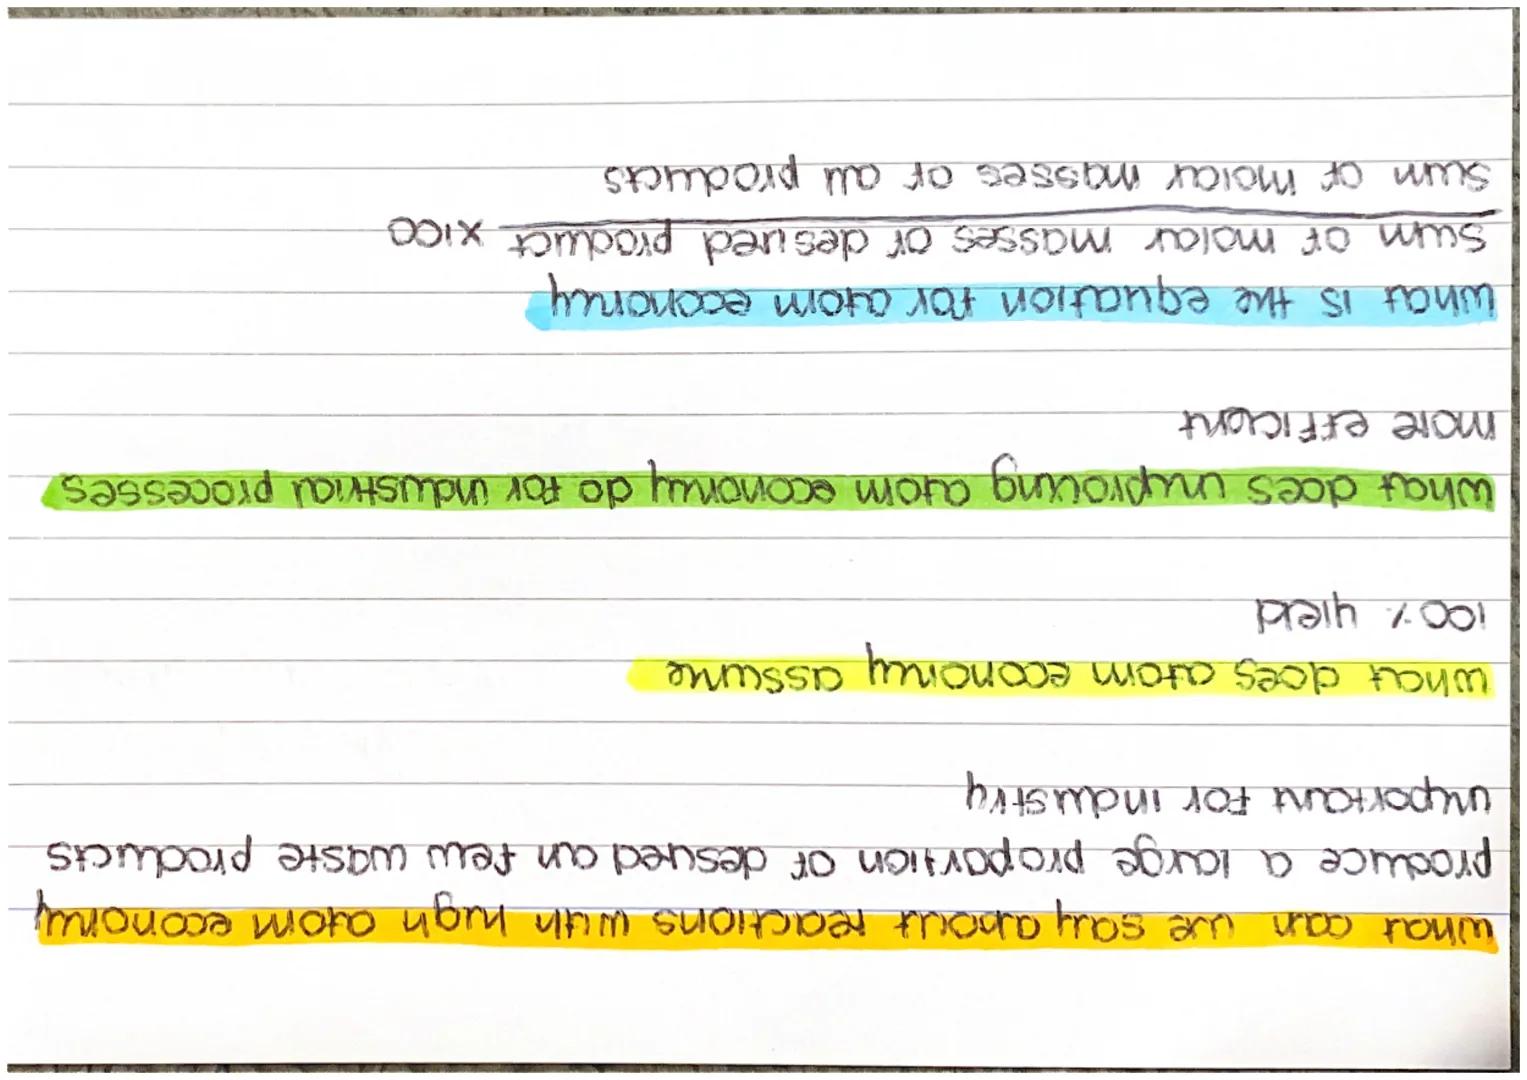 what can we say about reactions with high atom economy
produce a large proportion of desired an few waste products
important for industry
what does atom economy assume
100% yield
what does improving atom economy do for industrial processes
more efficient
what is the equation for atom economy
sum of molar masses of desired product x100
sum of molar masses of all products